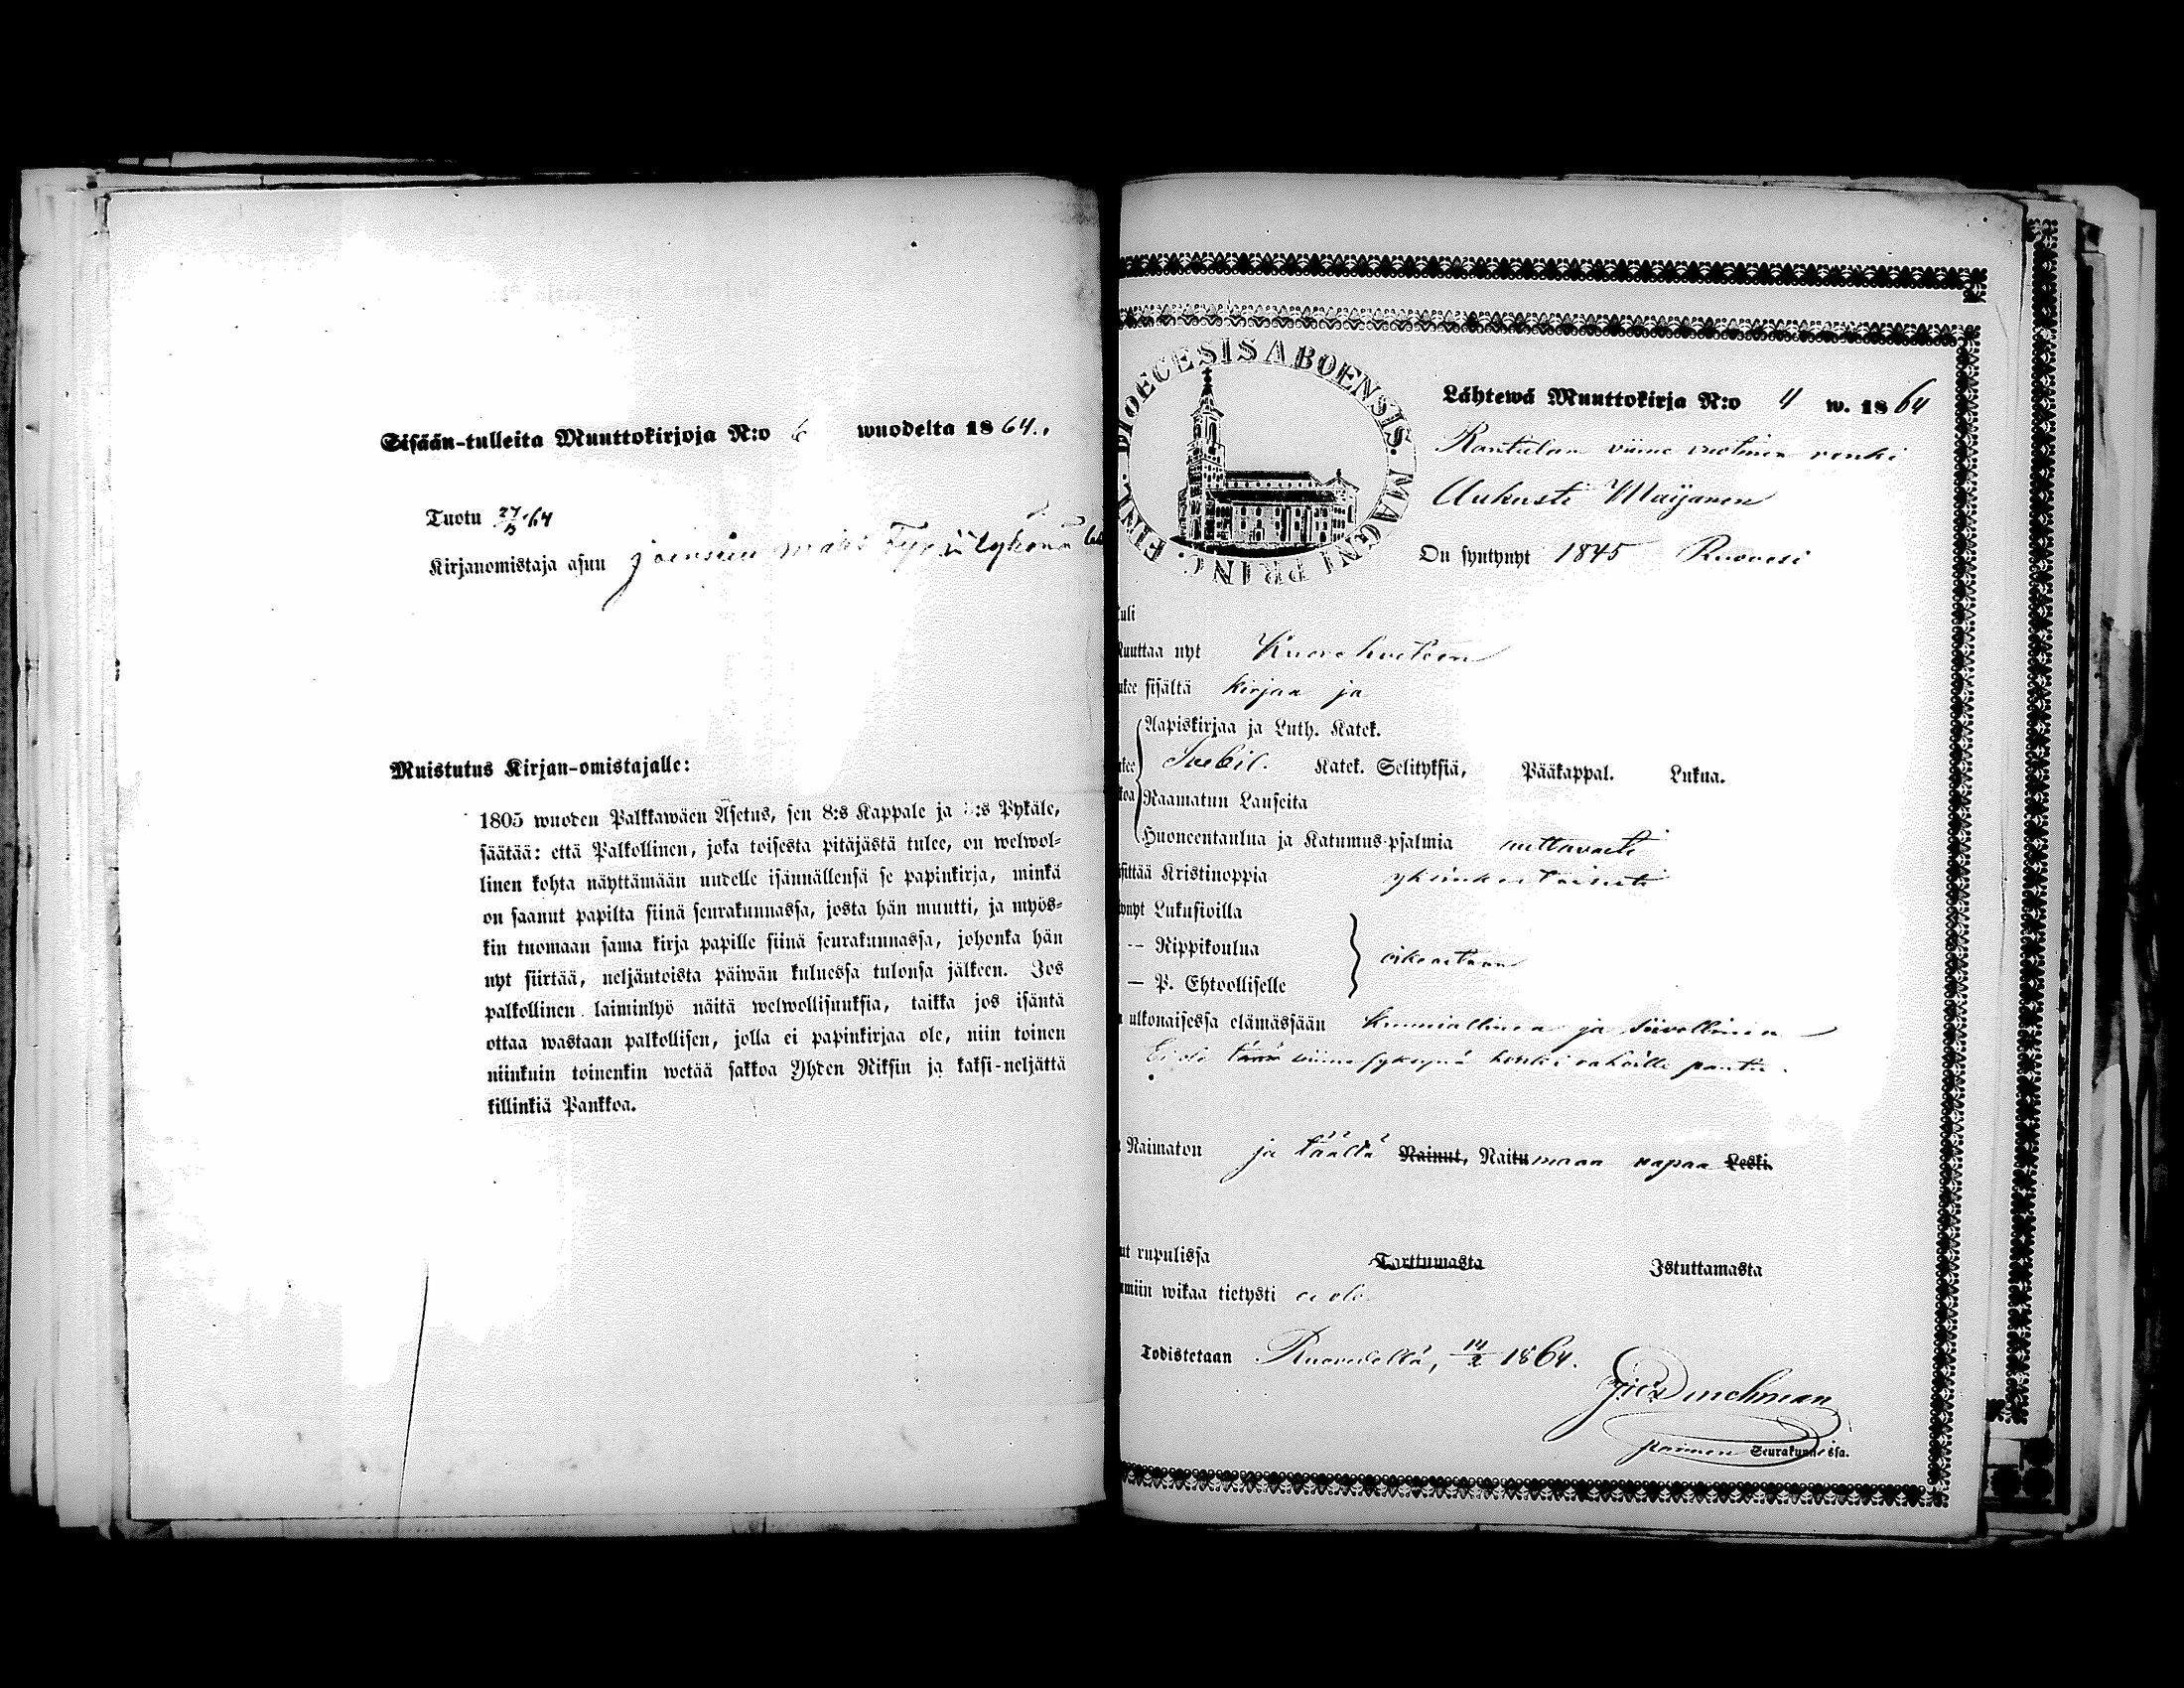 Sisään-tulleita Muuttokirjoja N:o 6 wuodelta 1864.
Tuotu 27/3 64
Kirjanomistaja asuu
Muistutus Kirjan-omistajalle:
1805 wuoden Palkkawäen Asetus, sen 8:s Kappale ja :s Pykäle,
säätää: että Palkollinen, joka toisesta pitäjästä tulee, on welwol-
linen kohta näyttämään uudelle isännällensä se papinkirja, minkä
on saanut papilta siinä seurakunnassa, josta hän muutti, ja myös-
kin tuomaan sama kirja papille siinä seurakunnassa, johonka hän
nyt siirtää, neljäntoista päiwän kuluessa tulonsa jälkeen. Jos
palkollinen laiminlyö näitä welwollisuuksia, taikka jos isäntä
ottaa wastaan palkollisen, jolla ei papinkirjaa ole, niin toinen
niinkuin toinenkin wetää sakkoa Yhden Riksin ja kaksi-neljättä
killinkiä Pankkoa.
DIOECESIS ABOENSIS. MAGNI PRINC. FINL.
Lähtewä Muuttokirja N:o 4 w. 1864
Rantulan viime vuotinen renki
Aukusti Maijanen
On syntynyt 1845 Ruovesi
uli
uuttaa nyt Kuorehveteen
ukee sisältä kirjaa ja
Aapiskirjaa ja Luth. Katek.
Svebil. Katek. Selityksiä, Pääkappal. Lukua.
Raamatun Lauseita
Huoneentaulua ja Katumus-psalmia auttavasti
sittää Kristinoppia yksinkertaisesti
ynyt Lukusioilla
-- Rippikoulua oikeastaan
— P. Ehtoolliselle
ulkonaisessa elämässään kunniallinen ja siivollinen
Ei ole tään viime syksynä henki rahoille pantu.
Naimaton ja täältä Nainut, Naitumaan vapaa Leski.
ut rupulissa Tarttumasta Istuttamasta
umiin wikaa tietysti ei ole
Todistetaan Ruovedellä, 14/2 1864.
Seurakunnassa.